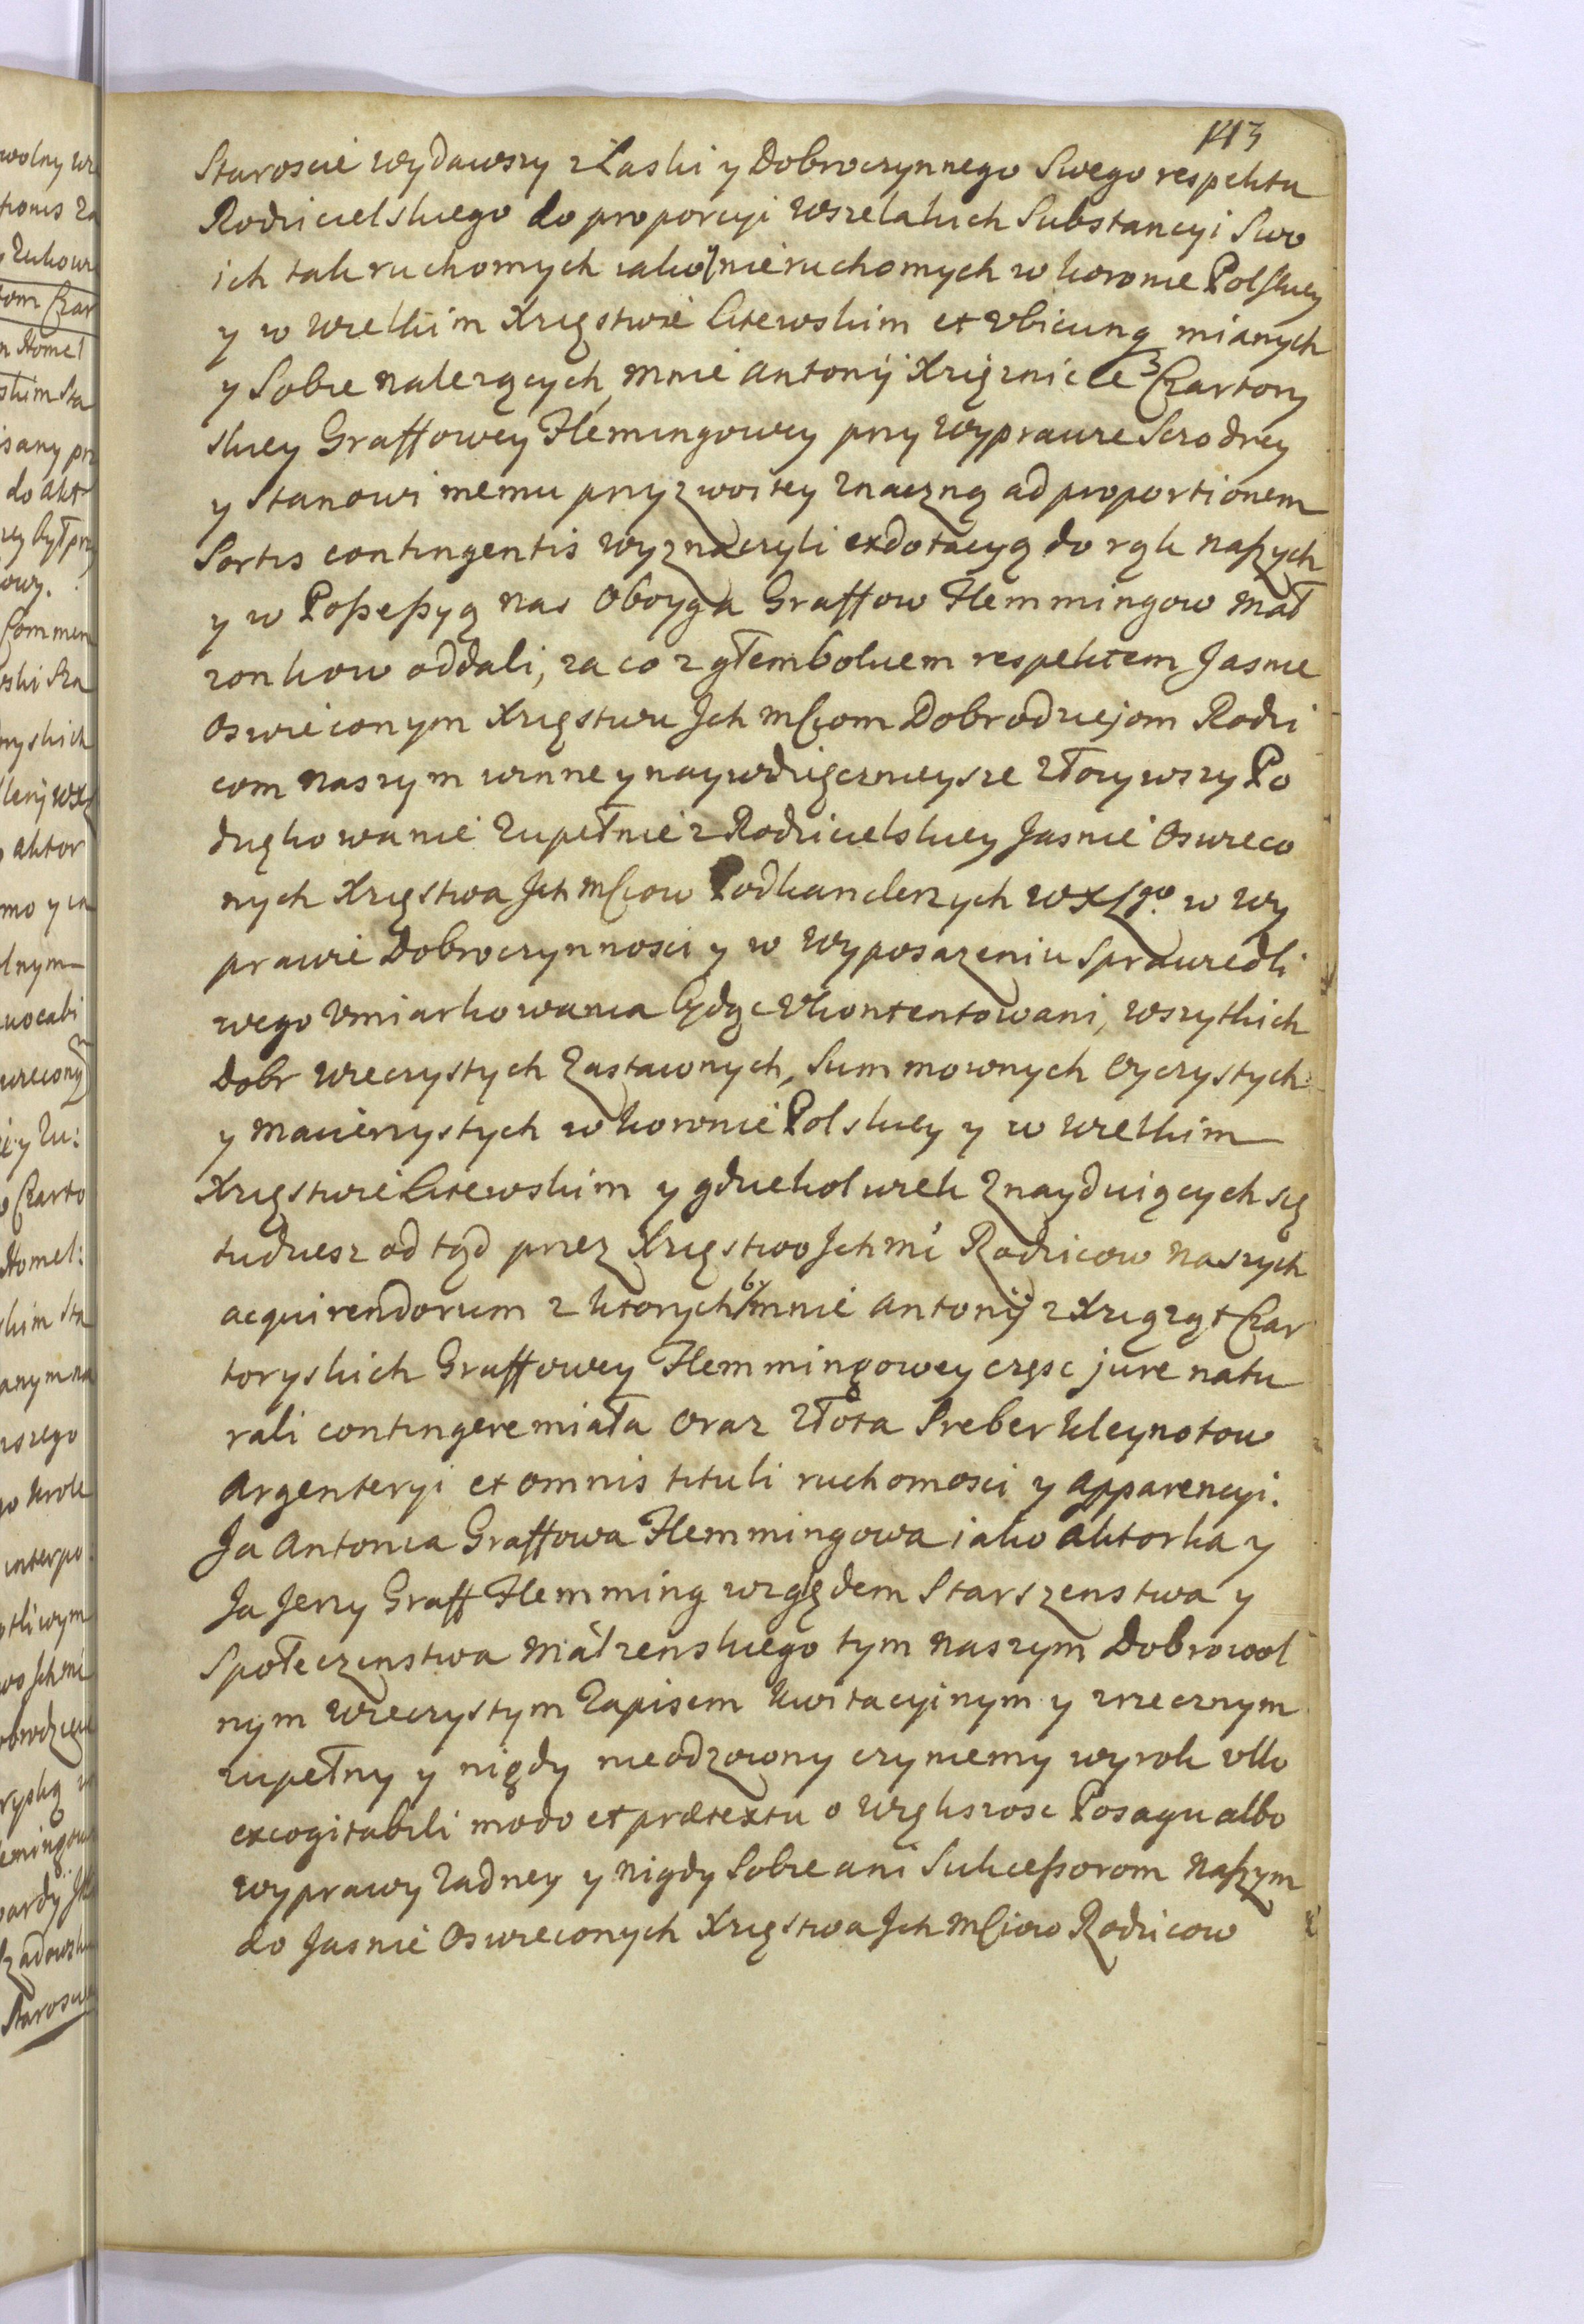 143
Staroscie wydawszy z Łaski y Dobroczynnego Swego respektu
Rodzicielskiego do proporcyi wszelakich Substancyi Swo
ich tak ruchomych iako y nieruchomych w koronie Polskiey
y w wielkim Xięstwie Litewskim et vbicunq mianych
y Sobie należących, mnie Antonij Xięznicce Czartory
skiey Graffowey Flemingowey przy wyprawie Szczodrey
y Stanowi memu przyzwoitey znaczną ad proportionem
Sortis contingentis wyznaczyli exdotacyą do rąk naszych
y w Possessyą nas Oboyga Graffow Flemmingow Mał
zonkow oddali, za co z głembokiem respektem Jasnie
Oswieconym Xięstwu Ich mciom Dobrodziejom Rodzi
com naszym winne y naywdzięcznieysze złozywszy Po
dziękowanie Zupełnie z Rodzicielskiey Jasnie Oswieco
nych Xięstwa Ich mciow Podkanclerzych WXLgo. w wy
prawie Dobroczynnosci y w wyposazeniu Sprawiedli
wego Vmiarkowania będąc Vkontentowani, wszytkich
Dobr wieczystych Zastawnych, Summownych Oyczystych
y Macierzystych w koronie Polskiey y w wielkim
Xięstwie Litewskim y gdziekolwiek Znayduiących się
tudziesz od tąd przez Xięstwo Ich mć Rodzicow naszych
acquirendorum z ktorych by mnie Antonij z Xiąząt Czar
toryskich Graffowey Flemmingowey częsc jure natu
rali contingere miała Oraz złota Sreber kleynotow
Argenteryi et omnis tituli ruchomosci y Apparencyi.
Ja Antonia Graffowa Flemmingowa iako Aktorka y
Ja Jerzy Graff Flemming względem Starszenstwa y
Społeczenstwa Małzenskiego tym naszym Dobrowol
nym wieczystym Zapisem kwitacyinym y zrzecznym
zupełny y nigdy nieodzowny czyniemy wyrok vllo
excogitabili modo et prætextu o większosc Posagu albo
wyprawy zadney y nigdy Sobie ani Sukcessorom naszym
do Jasnie Oswieconych Xięstwa Ich mciow Rodzicow